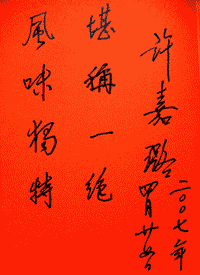 風味独特
堪稱一絶
许嘉璐
二〇〇七年
四月廿五日